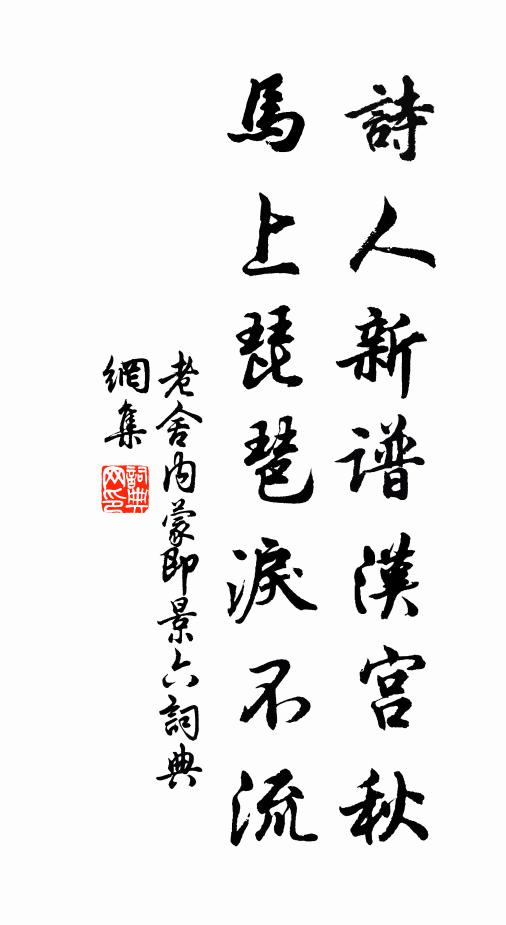 詩人新譜漢宮秋
馬上琵琶淚不流
老舍內蒙即景六詞典
網集
詞典網印